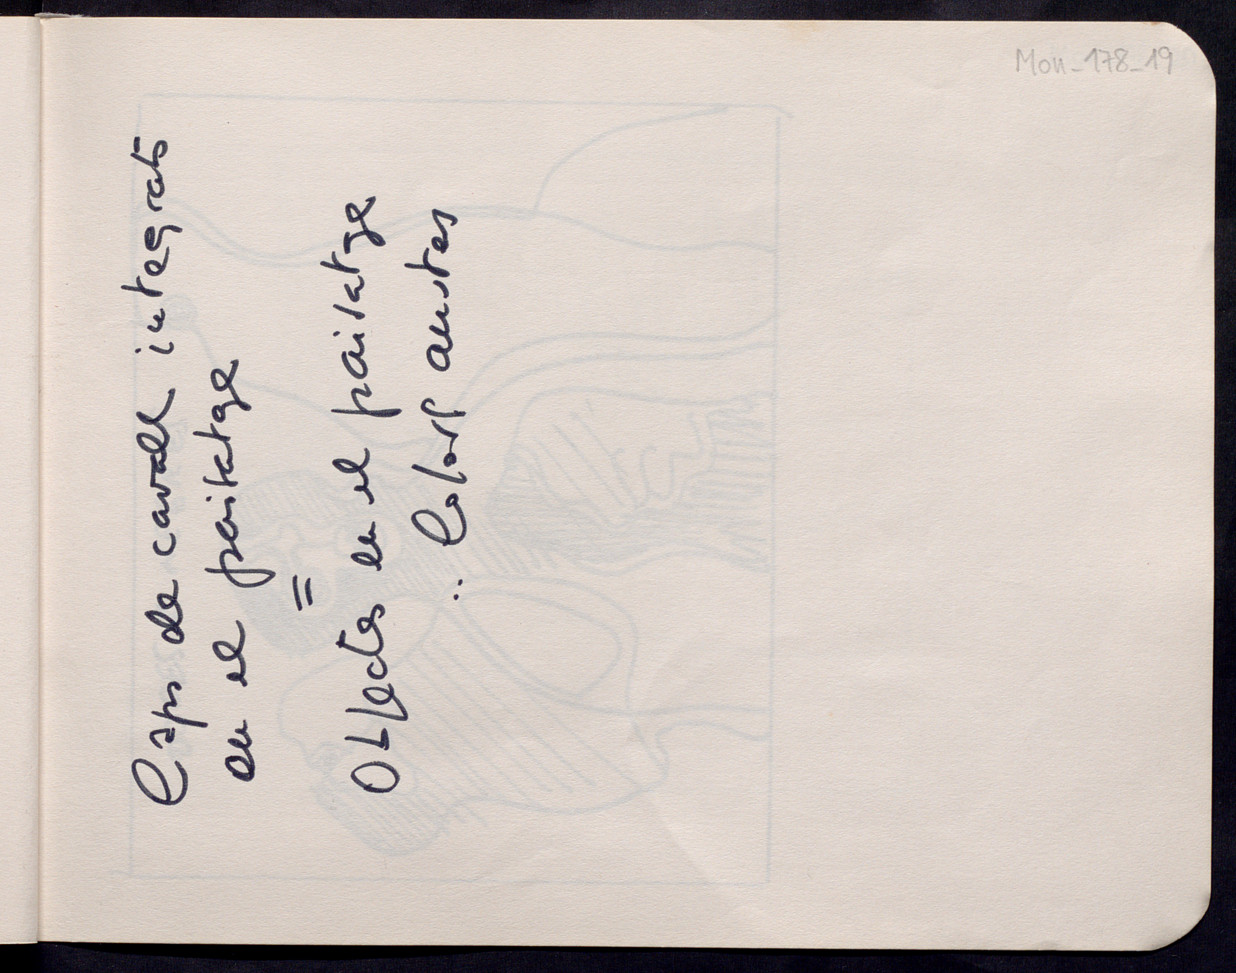 Caps de cavall integrats
en el paisatge
=
Objectes en el paisatge
.. Colors austes
Mon_178_19